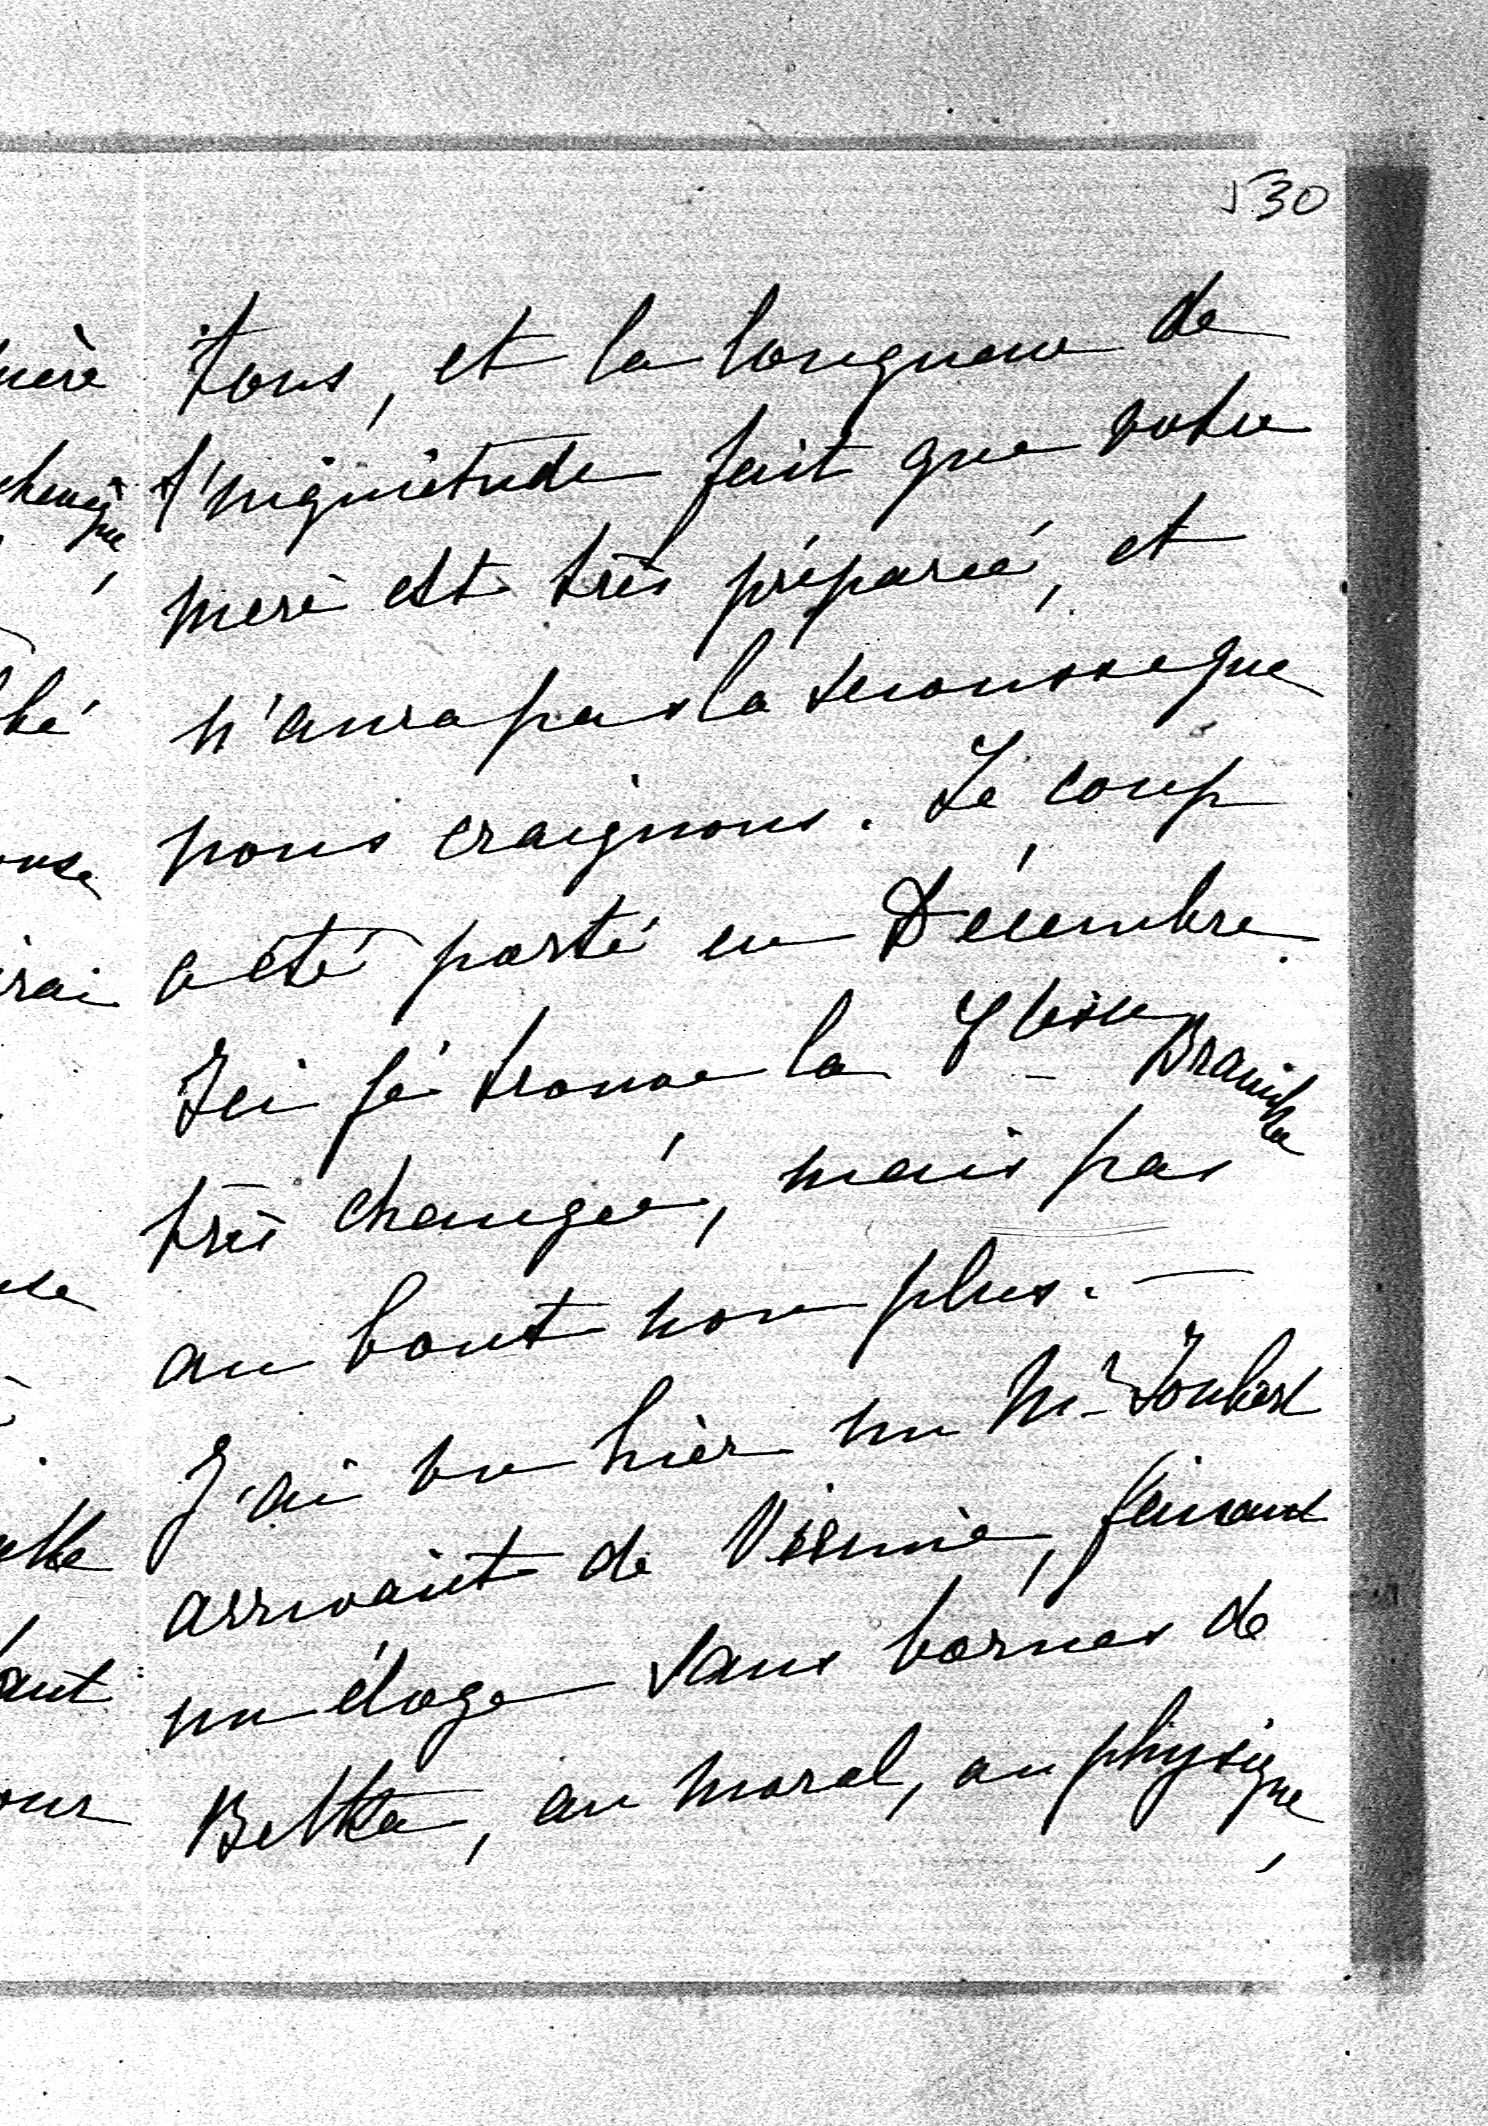 530
tous, et la longueur de
l'inquiétude fait que votre
mère est très préparée, et
n'aura pas la secousse que
nous craignons. Le coup
a été porté en Décembre.
Ici je trouve la Ctesse Branicka
très changée, mais pas
au bout non plus. —
J'ai vu hier un Mr Joubert
arrivant de Vienne, faisant
un éloge sans bornes de
Betka, au moral, au physique,